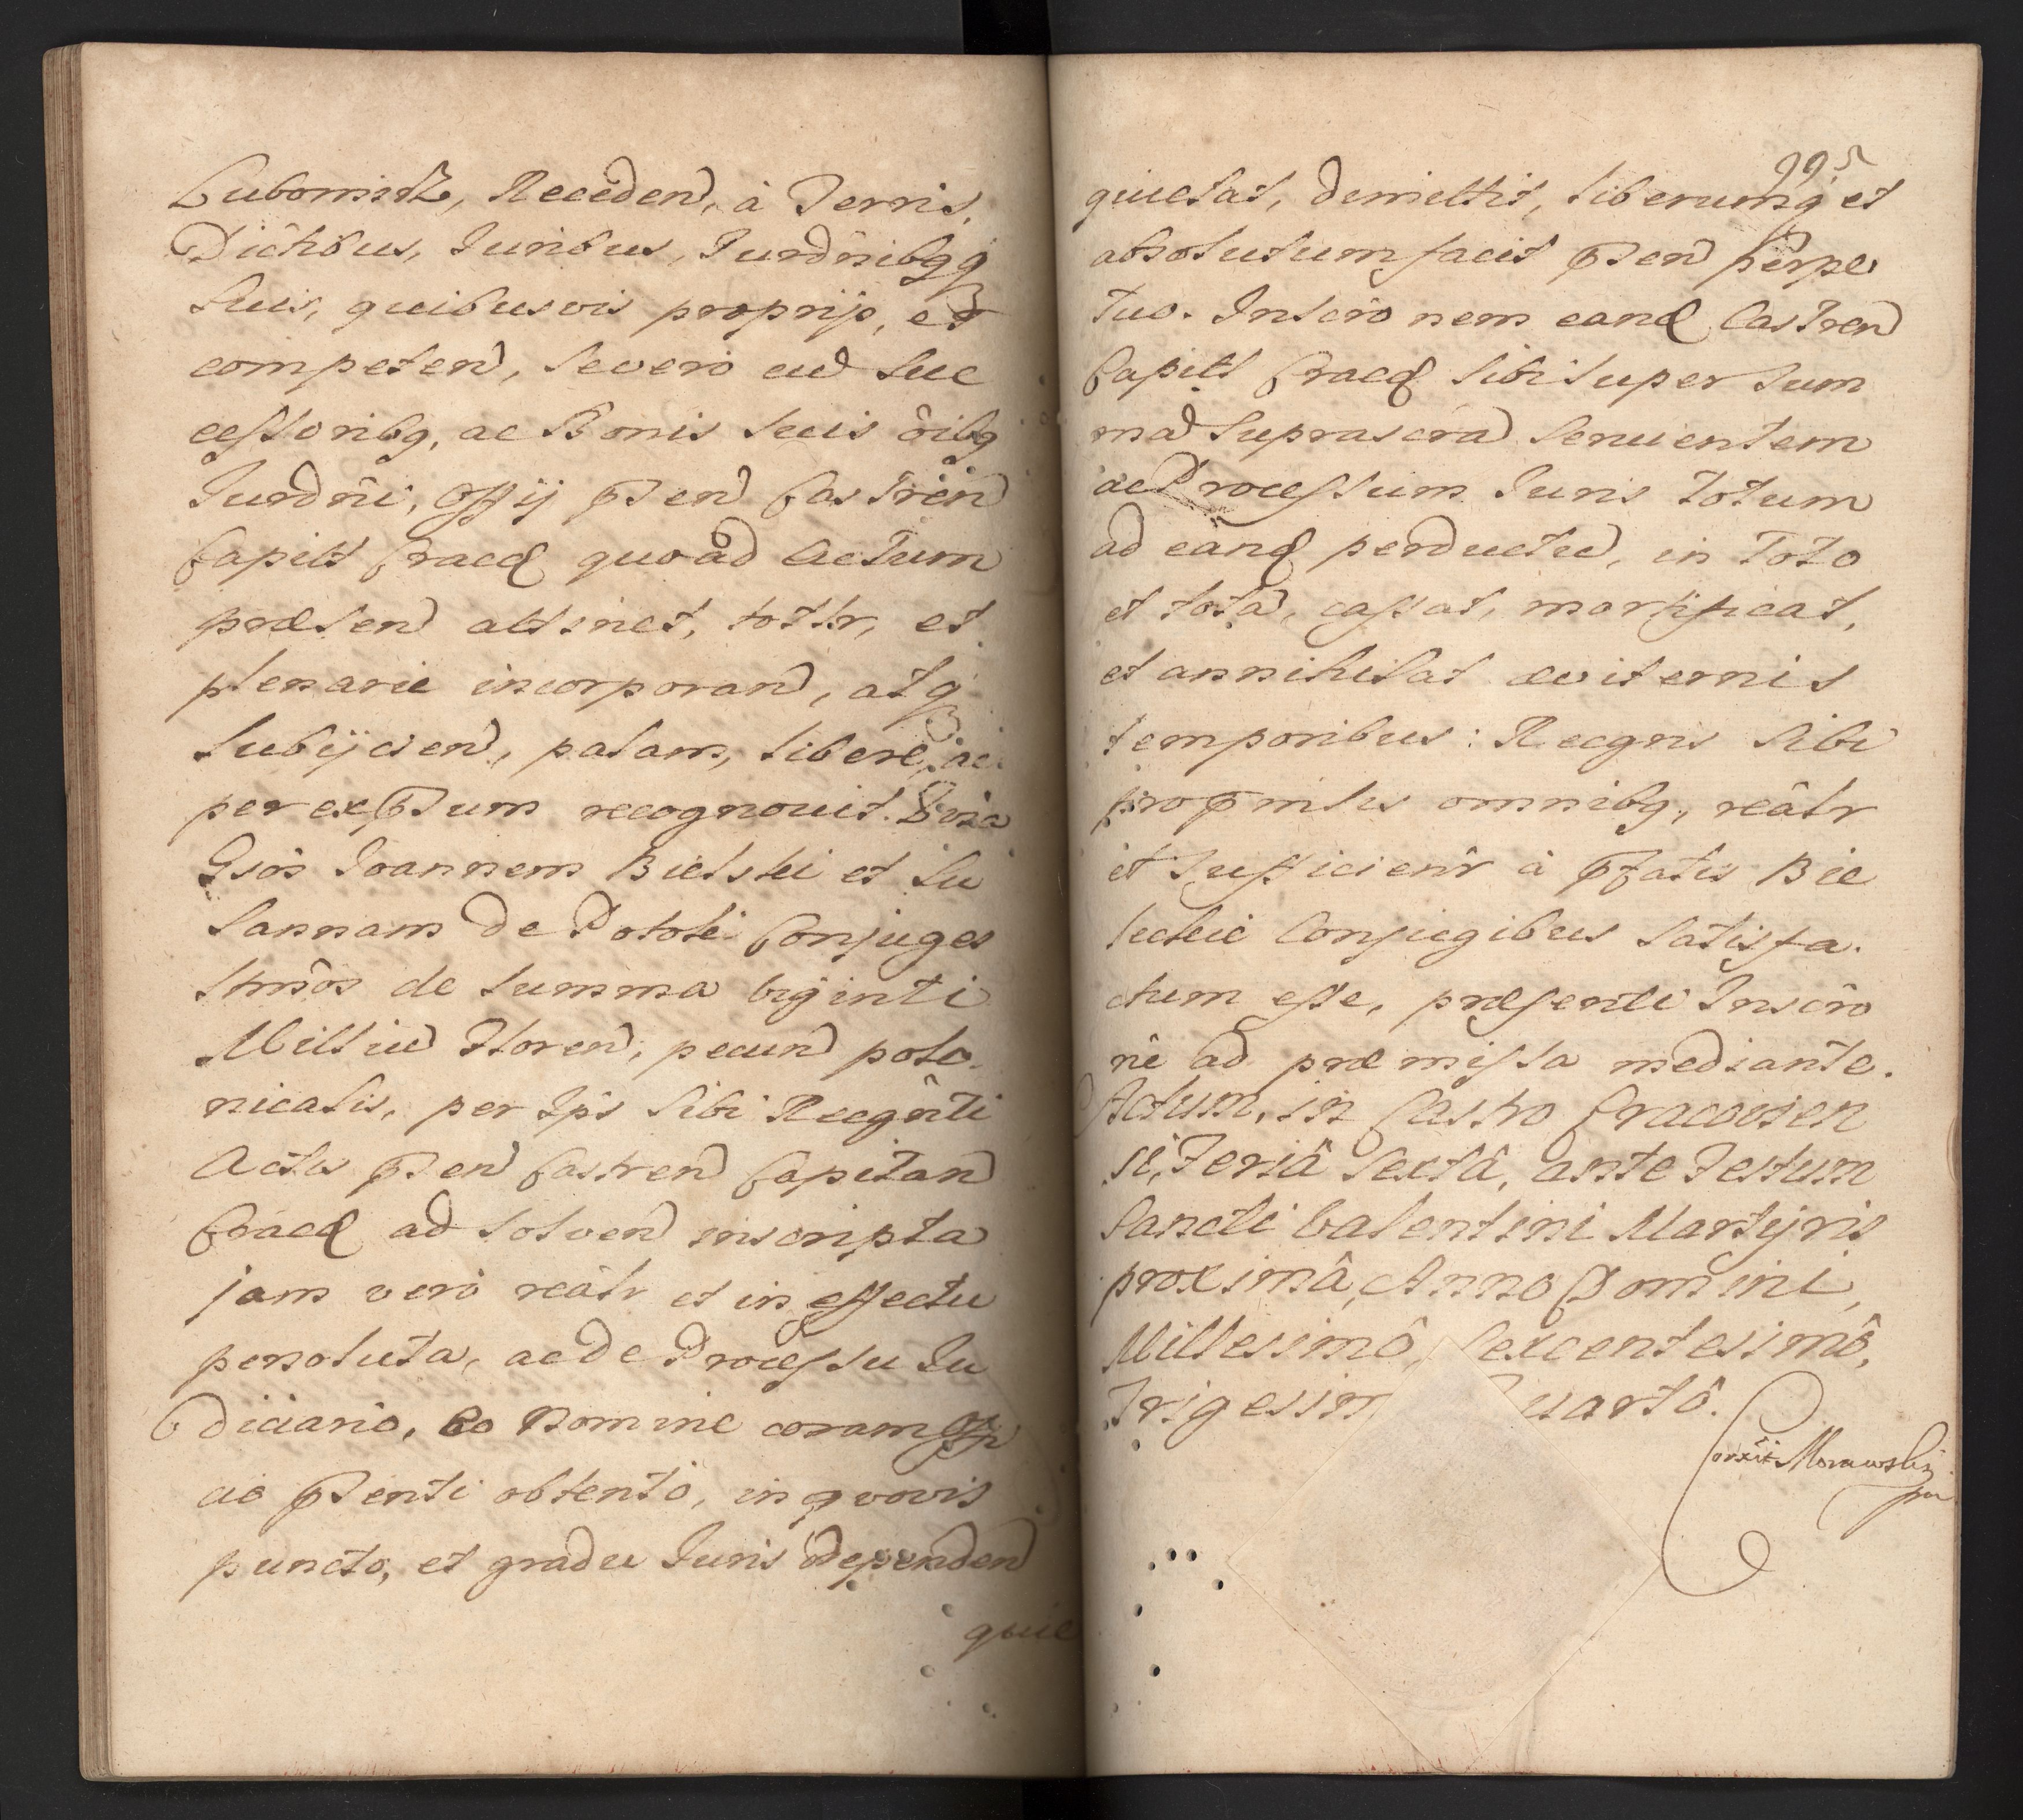 Lubomirz, Recedend, à Terris,
Dictibus, Juribus, Jurdñibqꝫ
Suis, quibusvis proprijs, et
competend, se vero cum Suc
cessoribq, ac Bonis suis õibq
Jurdñi, Offij pñtend Castren
Capitt Cracq quoad Actum
præsend attinet, tottr, et
plenarie incorporand, atqꝫ
Subijciend, palam, libere, ac
per expssum recognovit. Quia
Gsõs Joannem Bielski et Su
sannam de Potok Conjuges
de Summa viginti
Millium Floren, pecun polo
nicalis, per Ips Sibi Recgñti
Actis pñten Castren Capitan
Cracq ad solven inscripta
jam verò reãlr et in effectu
persoluta, ac de Processu Ju
diciario, eo Nomine coram Offi
ac pñtenti obtento, in quovis
puncto, et gradu Juris dependen
quie
995
quietat, dimittit, liberumqꝫ et
absolutum facit pñten perpe
tuo. Inscrõnem eand Castren
Capitt Cracq sibi super Sum
mam suprascrã servientem
ac Processum Juris totum
ad eand perductum, in Toto
et tota, cassat, mortificat,
et annihilat æviternis
temporibus: Recgns sibi
pro pmissis omnibq, reãlr
et sufficientr à pfatis Biel
Conjugibus satisfa
ctum esse, præsenti Inscrõ
ne ad præmissa mediante.
Actum, in Castro Cracovien
si, Feriâ Sextâ, ante Festum
Sancti Valentini Martyris
proximâ, Anno Domini,
Millesimô, Sexcentesimô,
Trigesim uartô.
Corxit Morawski